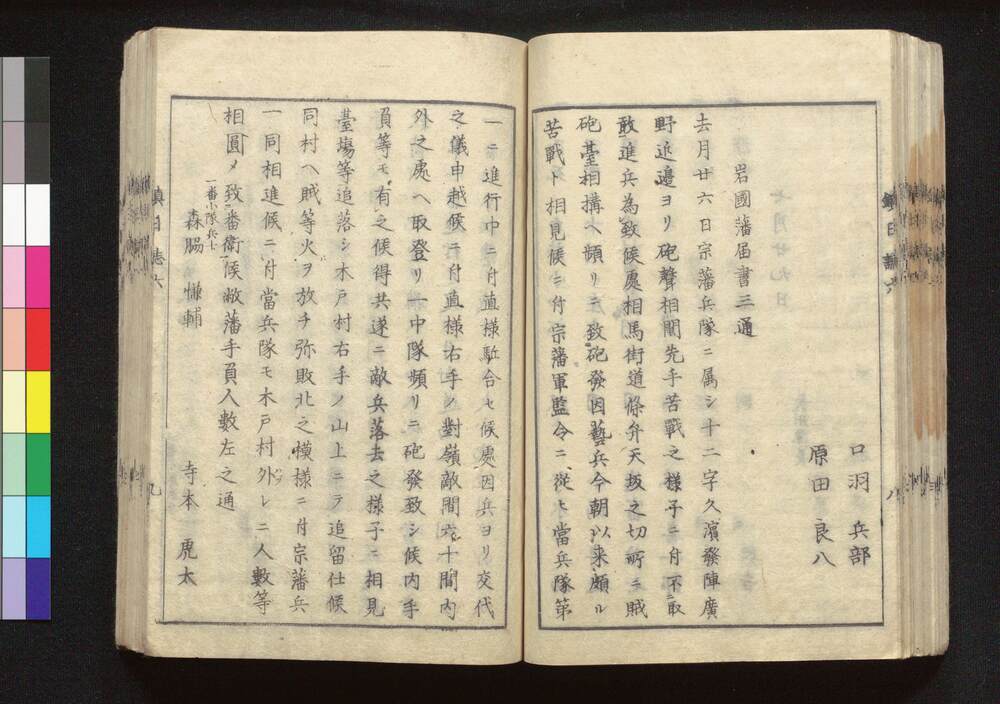 口羽 兵部
原田 良八
岩國藩届書三通
去月廿六日宗藩兵隊ニ属シ十二字久濱發陣廣
野近邊ヨリ砲聲相聞先手苦戰之様子ニ付不取
敢進兵為致候處相馬街道條弁天坂之切所ニ賊
砲臺相搆ヘ頻リニ致砲發因藝兵今朝以来頗ル
苦戰ト相見候ニ付宗藩軍監令ニ從ヒ當兵隊第
一ニ進行中ニ付直様駈合セ候處因兵ヨリ交代
之儀申越候ニ付直様右手ノ對嶺敵間六十間内
外之處ヘ取登リ一中隊頻リニ砲發致シ候内手
負等モ有之候得共遂ニ敵兵落去之様子ニ相見
臺塲等追落シ木戸村右手ノ山上ニテ追留仕候
同村ヘ賊等火ヲ放チ弥敗北之模様ニ付宗藩兵
一同相進候ニ付當兵隊モ木戸村外レニ人數等
相圓メ致番衛候敝藩手負人數左之通
一番小隊兵士
森脇 慊輔
寺本 虎太
鎮日誌六
九
八